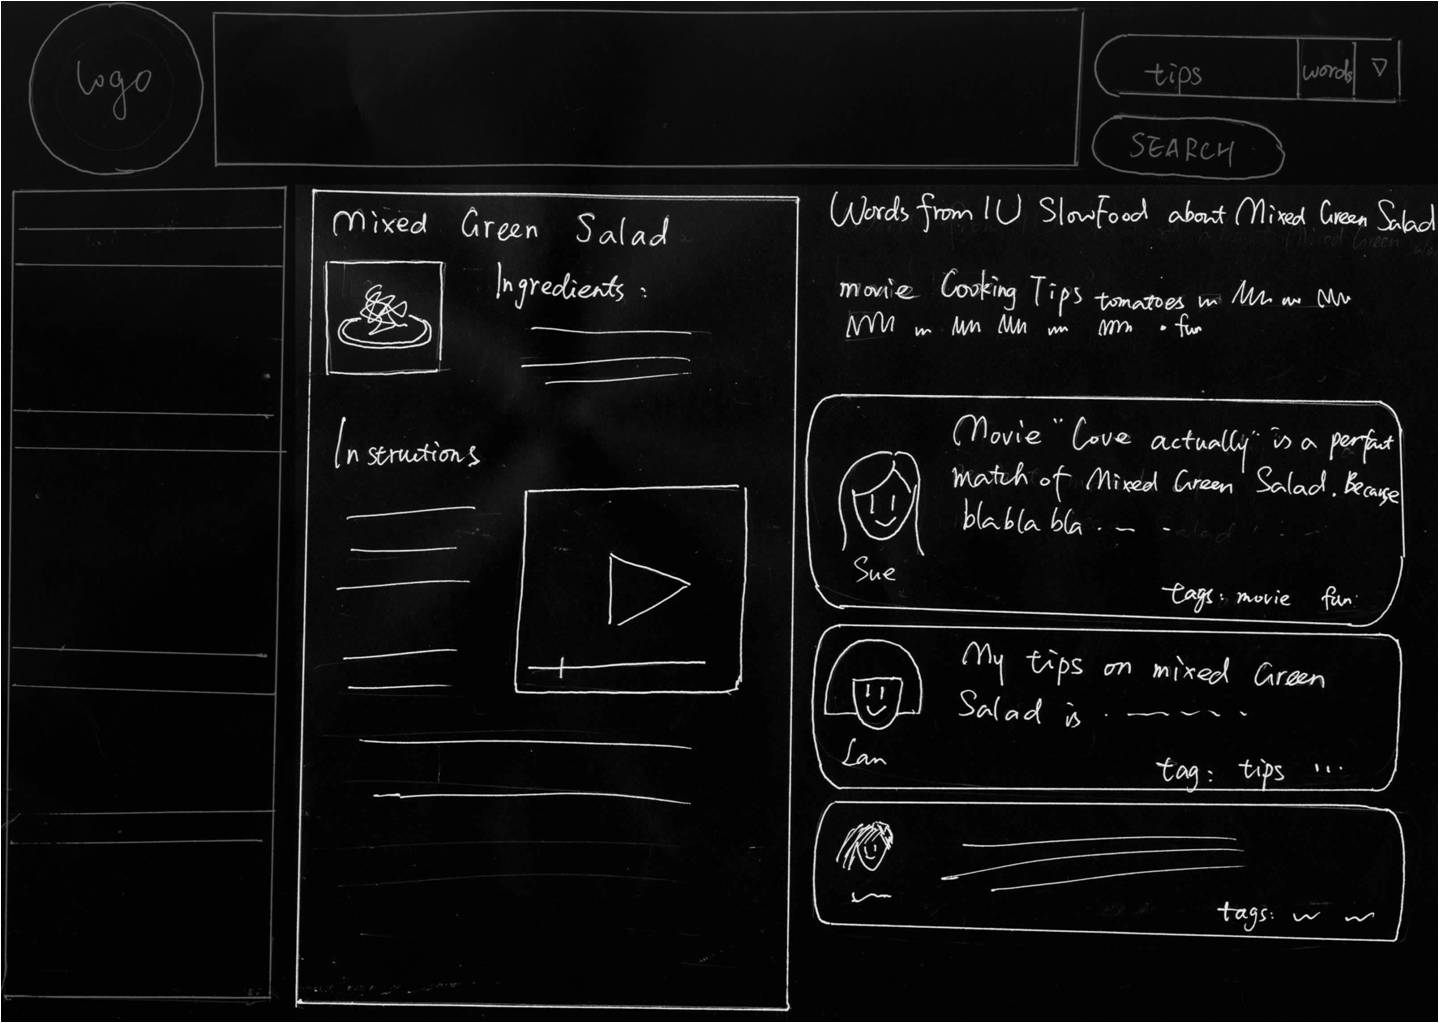 logo
tips
words
SEARCH
Mixed Green Salad
Ingredients :
Instructions
Words from IU SlowFood about Mixed Green Salad
movie Cooking Tips tomatoes
fun
Movie "Love actually" is a perfect
match of Mixed Green Salad. Because
bla bla bla
Sue
tags: movie fun
My tips on mixed Green
Salad is
Lan
tag: tips ...
tags: